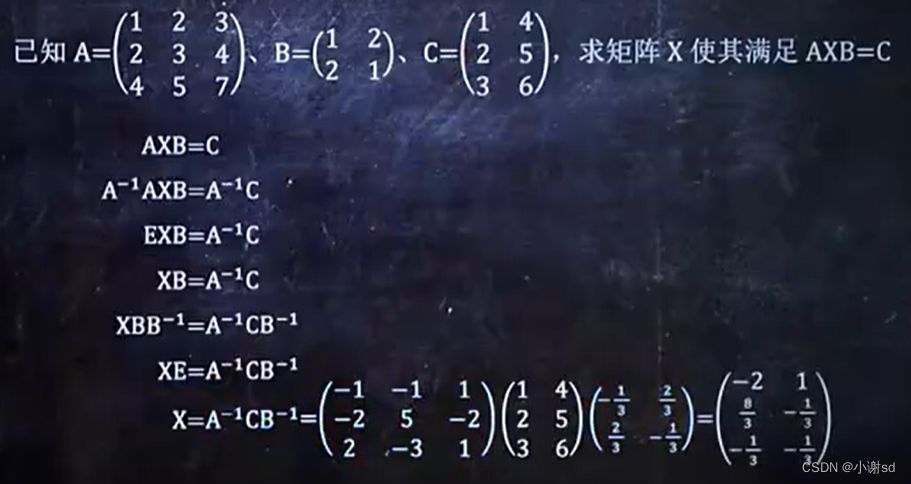 已知 A=(1 2 3; 2 3 4; 4 5 7)、B=(1 2; 2 1)、C=(1 4; 2 5; 3 6)，求矩阵 X 使其满足 AXB=C
AXB=C
A⁻¹AXB=A⁻¹C
EXB=A⁻¹C
XB=A⁻¹C
XBB⁻¹=A⁻¹CB⁻¹
XE=A⁻¹CB⁻¹
X=A⁻¹CB⁻¹=(−1 −1 1; −2 5 −2; 2 −3 1)(1 4; 2 5; 3 6)(−1/3 2/3; 2/3 −1/3)=(−2 1; 8/3 −1/3; −1/3 −1/3)
CSDN @小谢sd